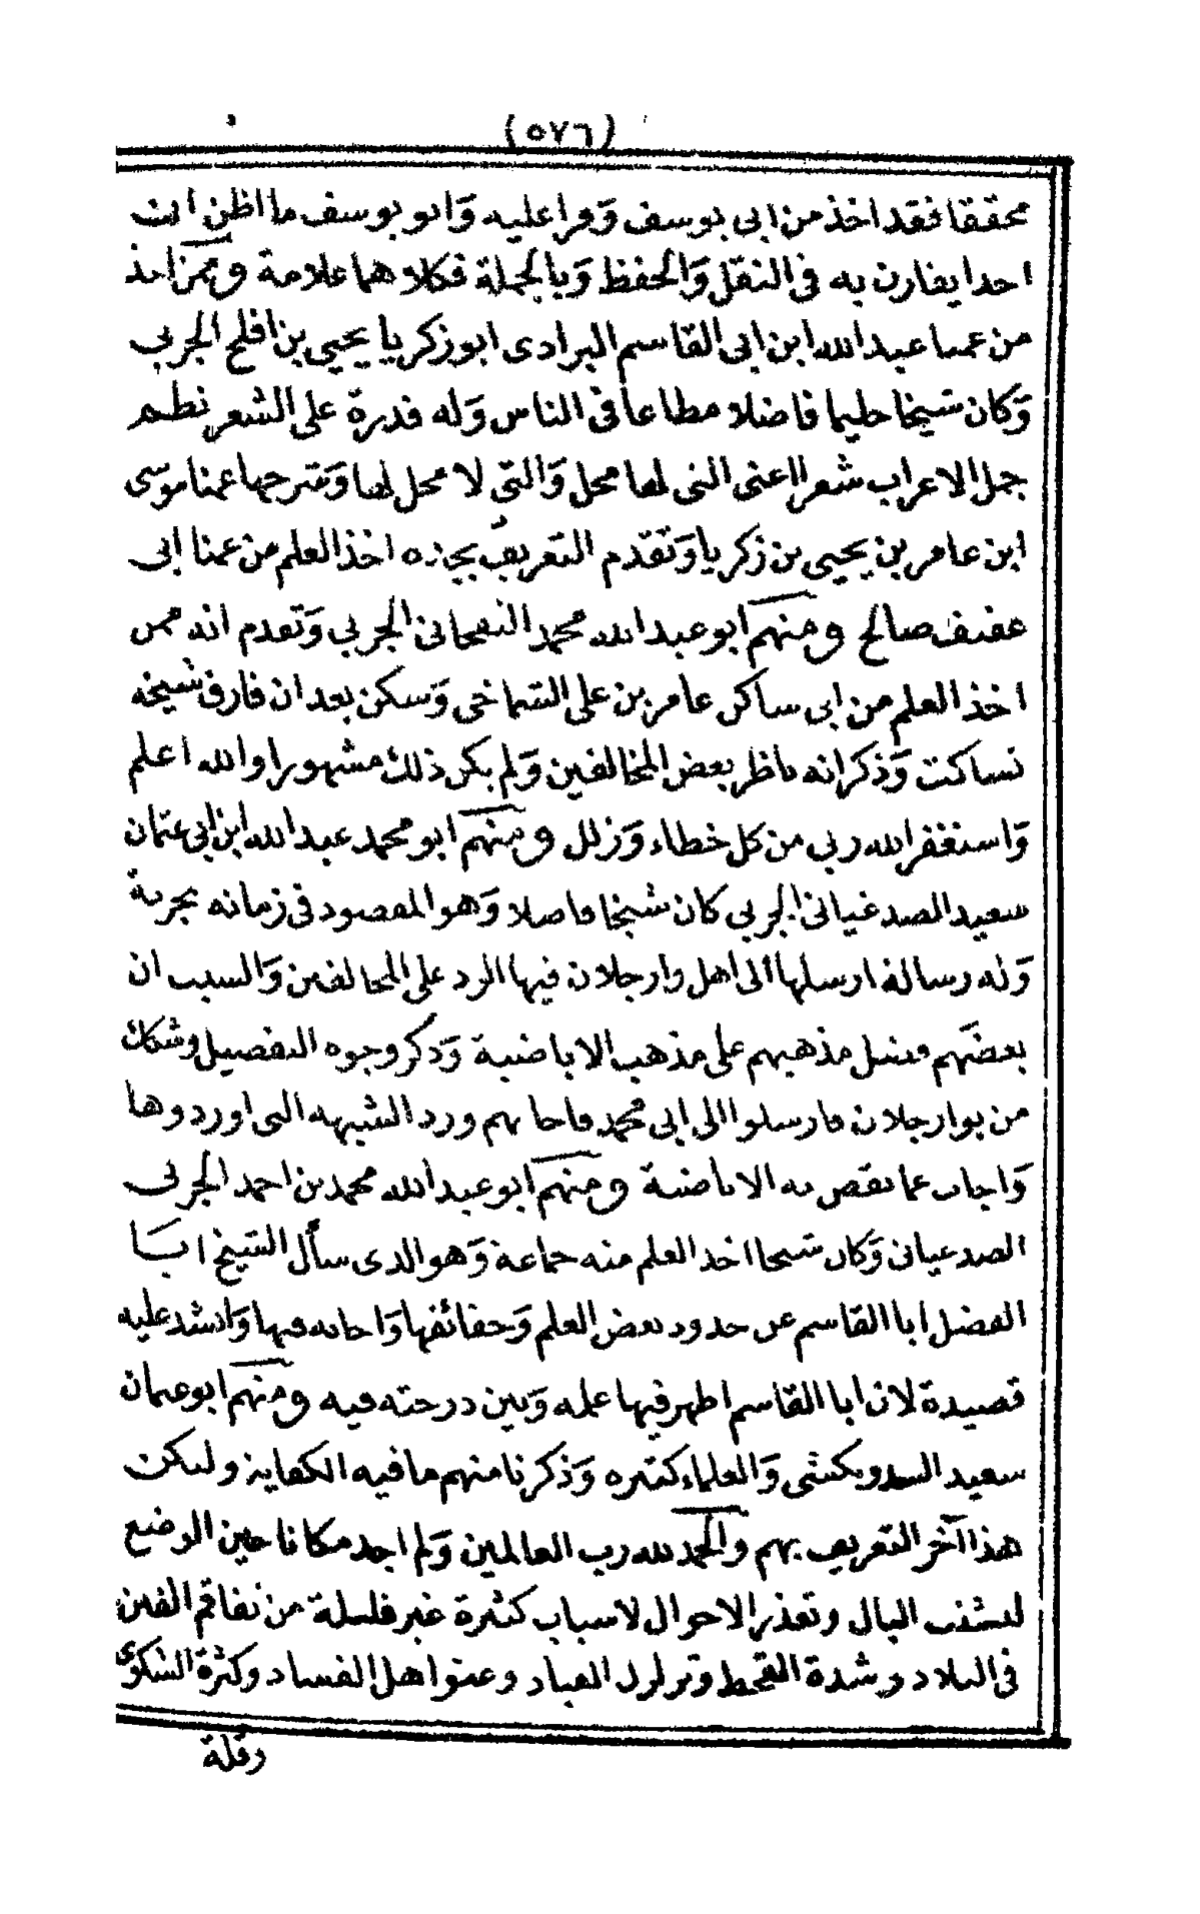 (٥٧٦)
محققا فقد اخذ من ابى يوسف وَقرا عليه وَابو يوسف ما اظن ان
احدا يقارن به فى النقل وَالحفظ وَبالجملة فكلاهما علامة وممن اخذ
من عمنا عبد الله ابن ابى القاسم البرادى ابو زكريا يحيى بن افلح الجربى
وَكان شيخا حليما فاضلا مطاعا فى الناس وَله قدرة على الشعر نظم
جمل الاعراب شعرا اعنى التى لها محل وَالتى لا محل لها وَشرحها عمنا موسى
ابن عامر بن يحيى بن زكريا وَتقدم التعريف بجده اخذ العلم من عمنا ابى
عفيف صالح ومنهم ابو عبد الله محمد النفحانى الجربي وَتقدم انه ممن
اخذ العلم من ابى ساكن عامر بن على الشماخى وَسكن بعد ان فارق شيخه
تساكنت وَذكر انه ناظر بعض المخالفين وَلم يكن ذلك مشهورا والله اعلم
وَاستغفر الله ربي من كل خطاء وَزلل ومنهم ابو محمد عبد الله ابن ابى عثمان
سعيد الصدغيانى الجربي كان شيخا فاضلا وَهو المقصود فى زمانه بجربة
وَله رسالة ارسلها الى اهل وارجلان فيها الرد على المخالفين وَالسبب ان
بعضهم فضل مذهبهم على مذهب الاباضية وَذكر وجوه التفصيل وشكك
من بوارجلان فارسلوا الى ابى محمد فاجابهم ورد الشبهه التى اوردوها
وَاجاب عما نقص به الاباضية ومنهم ابو عبد الله محمد بن احمد الجربى
الصدغيانى وَكان شيخا اخذ العلم منه جماعة وَهو الذى سأل الشيخ ابا
الفضل ابا القاسم عن حدود بعض العلم وَحقائقها وَاجابه فيها وَانشد عليه
قصيدة لان ابا القاسم اظهر فيها علمه وَبين درجته فيه ومنهم ابو عثمان
سعيد السدويكشى وَالعلماء كثيره وَذكرنا منهم ما فيه الكفاية وليكن
هذا آخر التعريف بهم والحمد لله رب العالمين وَلم اجد مكانا حين الوضع
لتشتت البال وتعذر الاحوال لاسباب كثيرة غير قليلة من تفاقم الفتن
فى البلاد وشدة القحط وتزلزل العباد وعتو اهل الفساد وكثرة الشكوى
وقلة